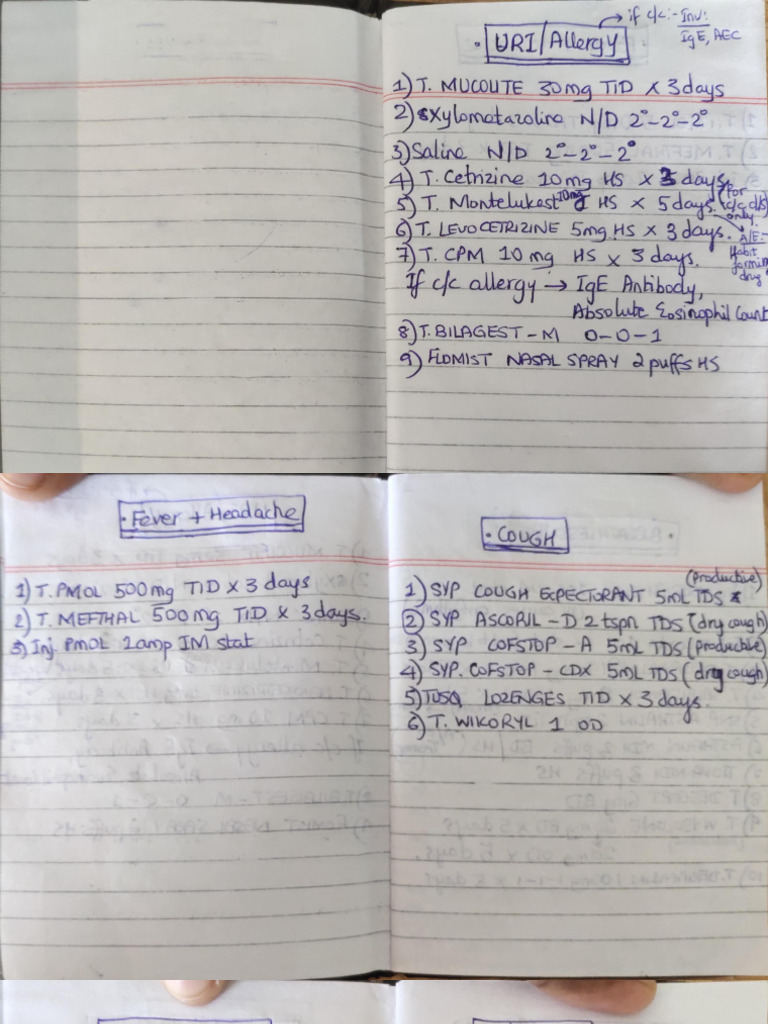 if c/c:- Inv:
IgE, AEC
• URI/Allergy
1) T. MUCOLITE 30mg TID x 3days
2) xylometazoline N/D 2°-2°-2°
3) Saline N/D 2°-2°-2°
4) T. Cetrizine 10mg HS x 3 days
5) T. Montelukast 10mg HS x 5 days. (for c/c d/s only.
6) T. LEVOCETRIZINE 5mg HS x 3 days. A/E:- Habit forming drug
7) T. CPM 10 mg HS x 3 days.
If c/c allergy → IgE Antibody,
Absolute Eosinophil Count
8) T. BILAGEST-M 0-0-1
9) FLOMIST NASAL SPRAY 2 puffs HS
• Fever + Headache
1) T. PMOL 500mg TID x 3 days
2) T. MEFTHAL 500 mg TID x 3 days.
3) Inj. PMOL 2amp IM stat
• COUGH
1) SYP COUGH EXPECTORANT 5mL TDS (productive)
2) SYP ASCORIL-D 2 tspn TDS (dry cough)
3) SYP COFSTOP-A 5mL TDS (productive)
4) SYP. COFSTOP-CDX 5mL TDS (dry cough)
5) TUSQ LOZENGES TID x 3 days.
6) T. WIKORYL 1 OD